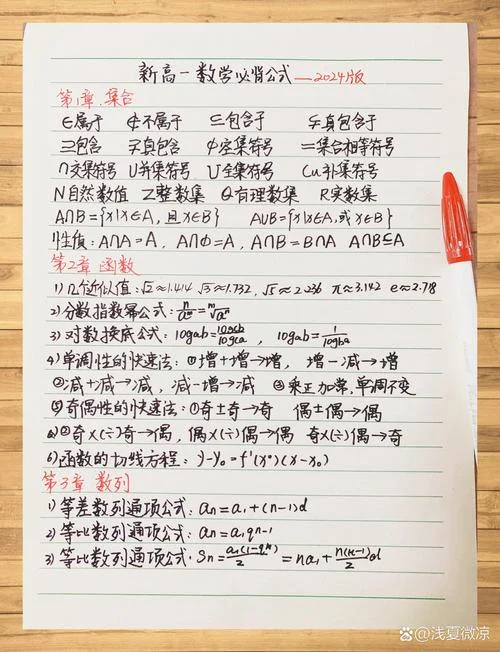 新高一数学必背公式——2024版
第1章.集合
∈属于 ∉不属于 ⊆包含于 ⫋真包含于
⊇包含 ⫌真包含 Φ空集符号 =集合相等符号
∩交集符号 U并集符号 U全集符号 CU补集符号
N自然数值 Z整数集 Q有理数集 R实数集
A∩B={x|x∈A,且x∈B} AUB={x|x∈A,或x∈B}
性值:A∩A=A, A∩Φ=A, A∩B=B∩A A∩B⊆A
第2章 函数
1)几近似值:√2≈1.414 √3≈1.732, √5≈2.236 π≈3.142 e≈2.718
2)分数指数幂公式:
3)对数换底公式:logab=logcb/logca, logab=1/logba
4)单调性的快速法:①增+增→增, 增-减→增
②减+减→减, 减-增→减 ③乘正加常,单调不变
⑤奇偶性的快速法:①奇±奇→奇 偶±偶→偶
②奇×(÷)奇→偶, 偶×(÷)偶→偶 奇×(÷)偶→奇
6)函数的切线方程: y-y₀=f'(x°)(x-x₀)
第3章 数列
1)等差数列通项公式: an=a₁+(n-1)d
2)等比数列通项公式: an=a₁qⁿ⁻¹
3)等比数列通项公式·Sn=a₁(1-qⁿ)/2=na₁+n(n-1)/2 d
浅夏微凉